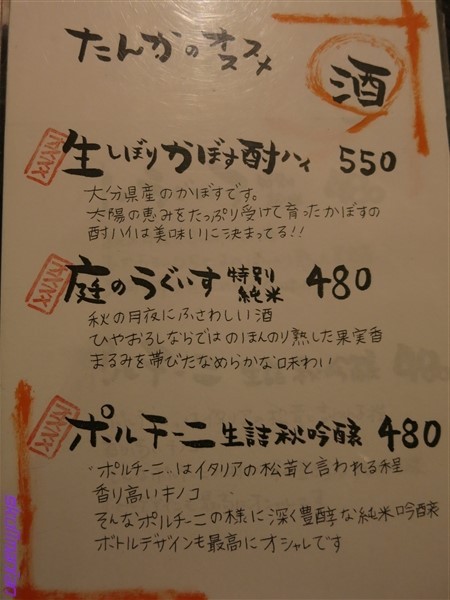 たんかのオススメ
酒
生しぼりかぼす酎ハイ 550
大分県産のかぼすです。
太陽の恵みをたっぷり受けて育ったかぼすの
酎ハイは美味いに決まってる!!
庭のうぐいす 特別純米 480
秋の月夜にふさわしい酒
ひやおろしならではのほんのり熟した果実香
まるみを帯びたなめらかな味わい
ポルチーニ 生詰秋吟醸 480
"ポルチーニ"はイタリアの松茸と言われる程
香り高いキノコ
そんなポルチーニの様に深く豊醇な純米吟醸
ボトルデザインも最高にオシャレです